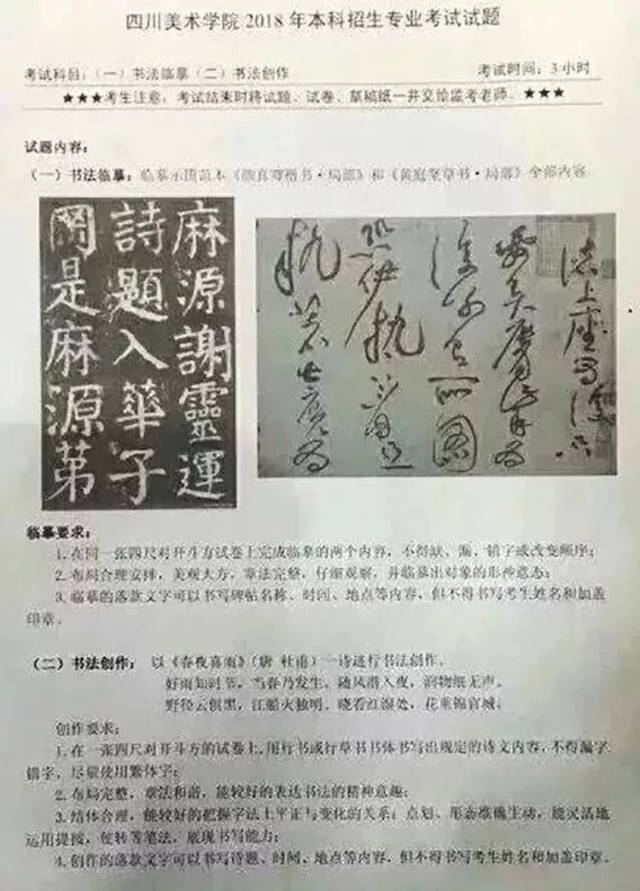 四川美术学院 2018 年本科招生专业考试试题
考试科目：（一）书法临摹（二）书法创作
考试时间：3 小时
★★★考生注意：考试结束时将试题、试卷、草稿纸一并交给监考老师。★★★
试题内容：
（一）书法临摹：临摹示图范本《颜真卿楷书·局部》和《黄庭坚草书·局部》全部内容
麻源謝靈運
詩題入華子
岡是麻源苐
临摹要求：
1. 在同一张四尺对开斗方试卷上完成临摹的两个内容，不得缺、漏、错字或改变顺序；
2. 布局合理安排，美观大方，章法完整，仔细观察，并临摹出对象的形神意态；
3. 临摹的落款文字可以书写碑帖名称、时间、地点等内容，但不得书写考生姓名和加盖
印章。
（二）书法创作： 以《春夜喜雨》（唐 杜甫）一诗进行书法创作。
好雨知时节，当春乃发生。随风潜入夜，润物细无声。
野径云俱黑，江船火独明。晓看红湿处，花重锦官城。
创作要求：
1. 在一张四尺对开斗方的试卷上，用行书或行草书书体书写出规定的诗文内容，不得漏字
错字，尽量使用繁体字；
2. 布局完整，章法和谐，能较好的表达书法的精神意趣；
3. 结体合理，能较好的把握字法上平正与变化的关系；点划、形态准确生动，能灵活地
运用提按、使转等笔法，展现书写能力；
4. 创作的落款文字可以书写诗题、时间、地点等内容，但不得书写考生姓名和加盖印章。